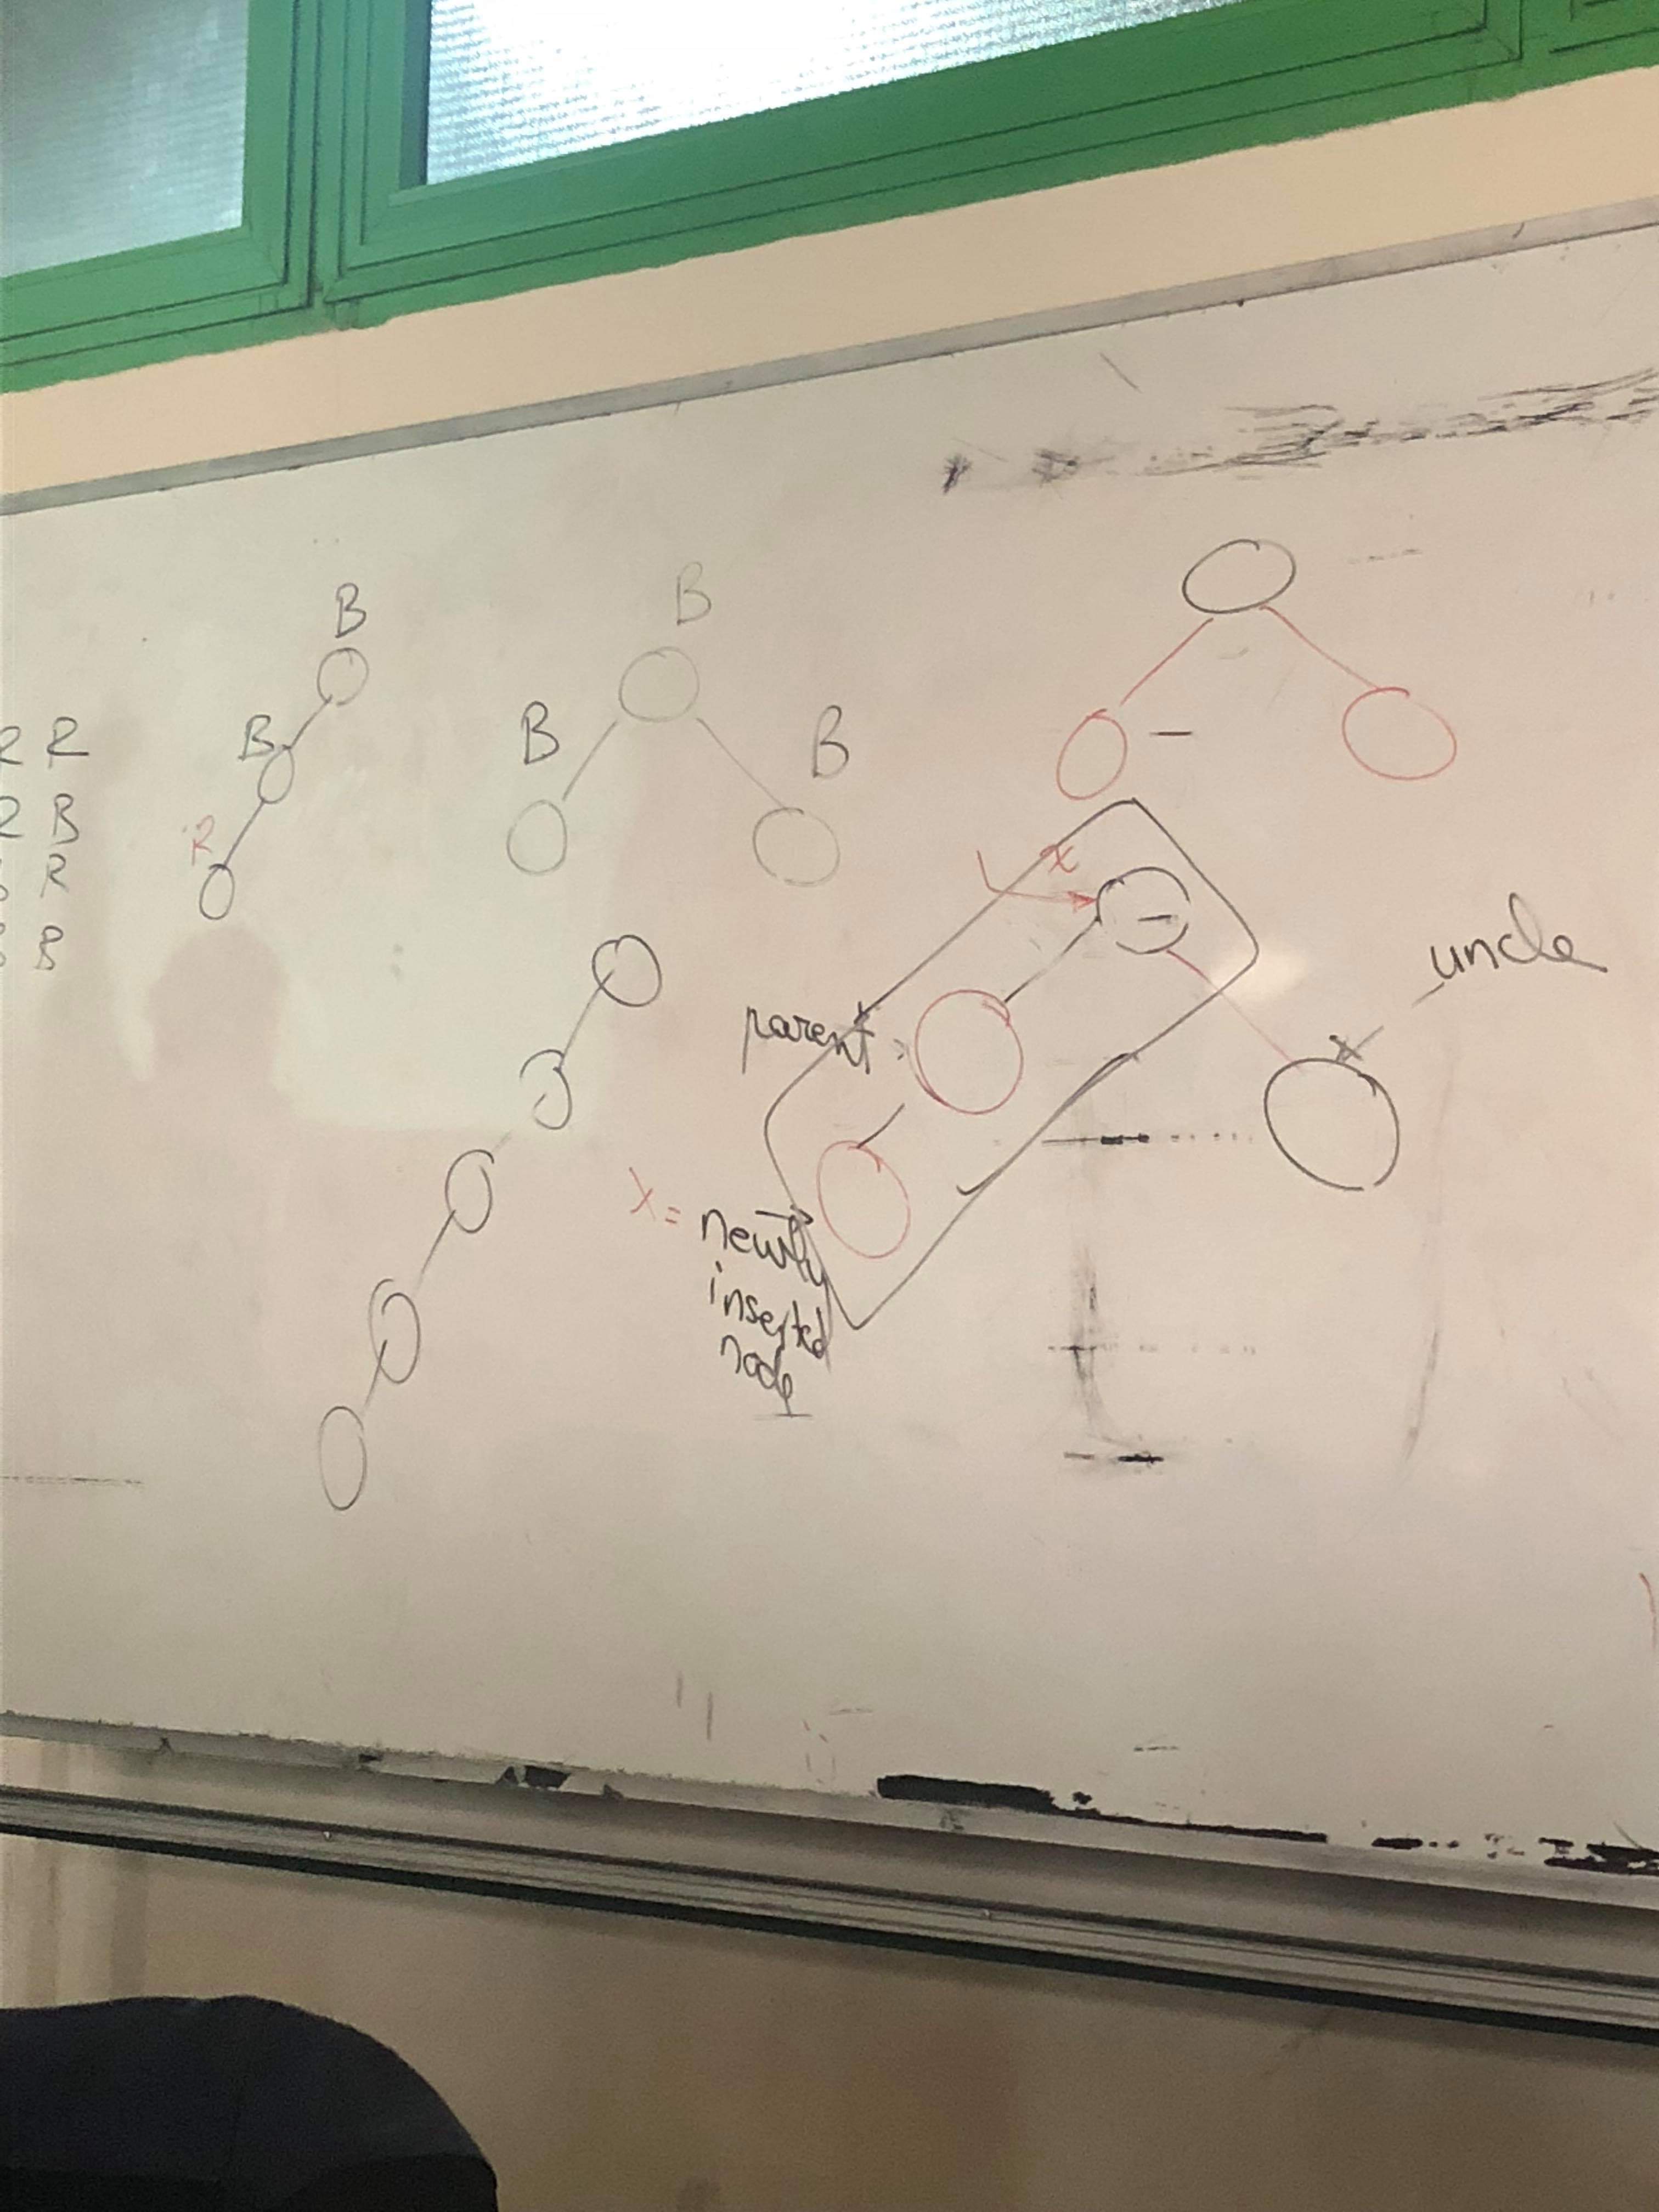 B
B
R
B
B
B
R R
R B
R
B
x
uncle
parent
x = newly
inserted
node